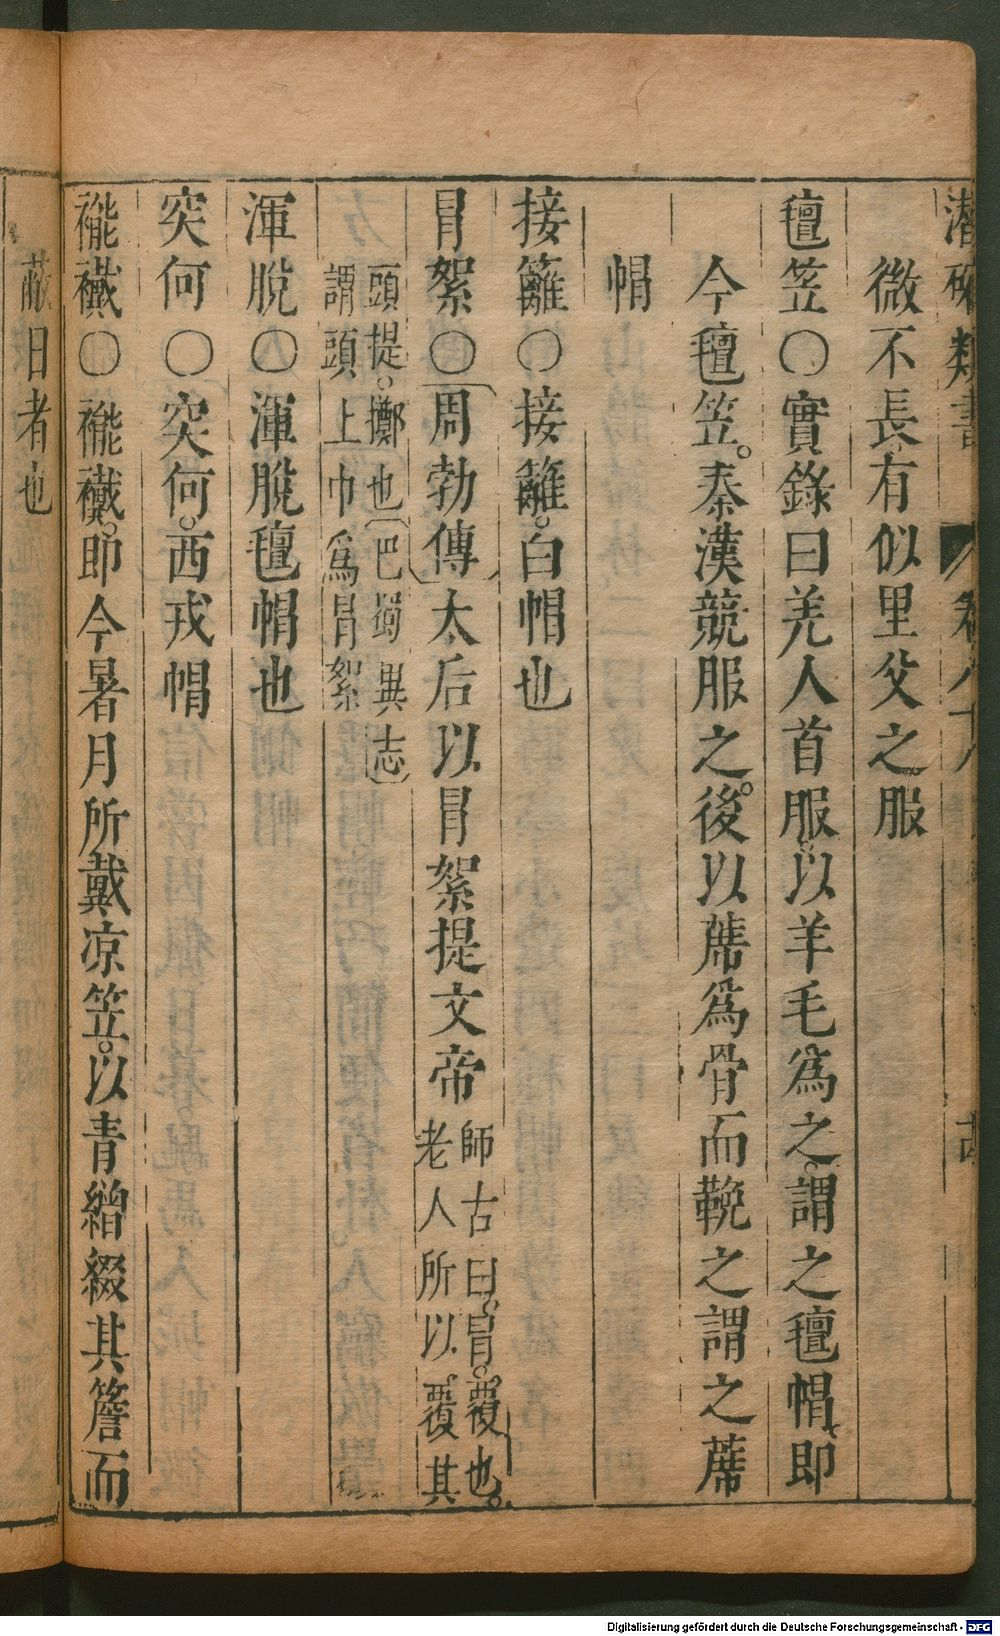 潛確類書 卷八十八
微不長有似里父之服
氊笠〇實錄曰羌人首服以羊毛爲之謂之氊帽即
今氊笠秦漢競服之後以蓆爲骨而鞔之謂之蓆
帽
接籬〇接籬白帽也
冒絮〇周勃傳太后以冒絮提文帝師古曰冒覆也老人所以覆其
頭提擲也巴蜀異志謂頭上巾爲冒絮
渾脫〇渾脫氊帽也
突何〇突何西戎帽
褦襶〇褦襶即今暑月所戴凉笠以青繒綴其簷而
蔽日者也
Digitalisierung gefördert durch die Deutsche Forschungsgemeinschaft - DFG